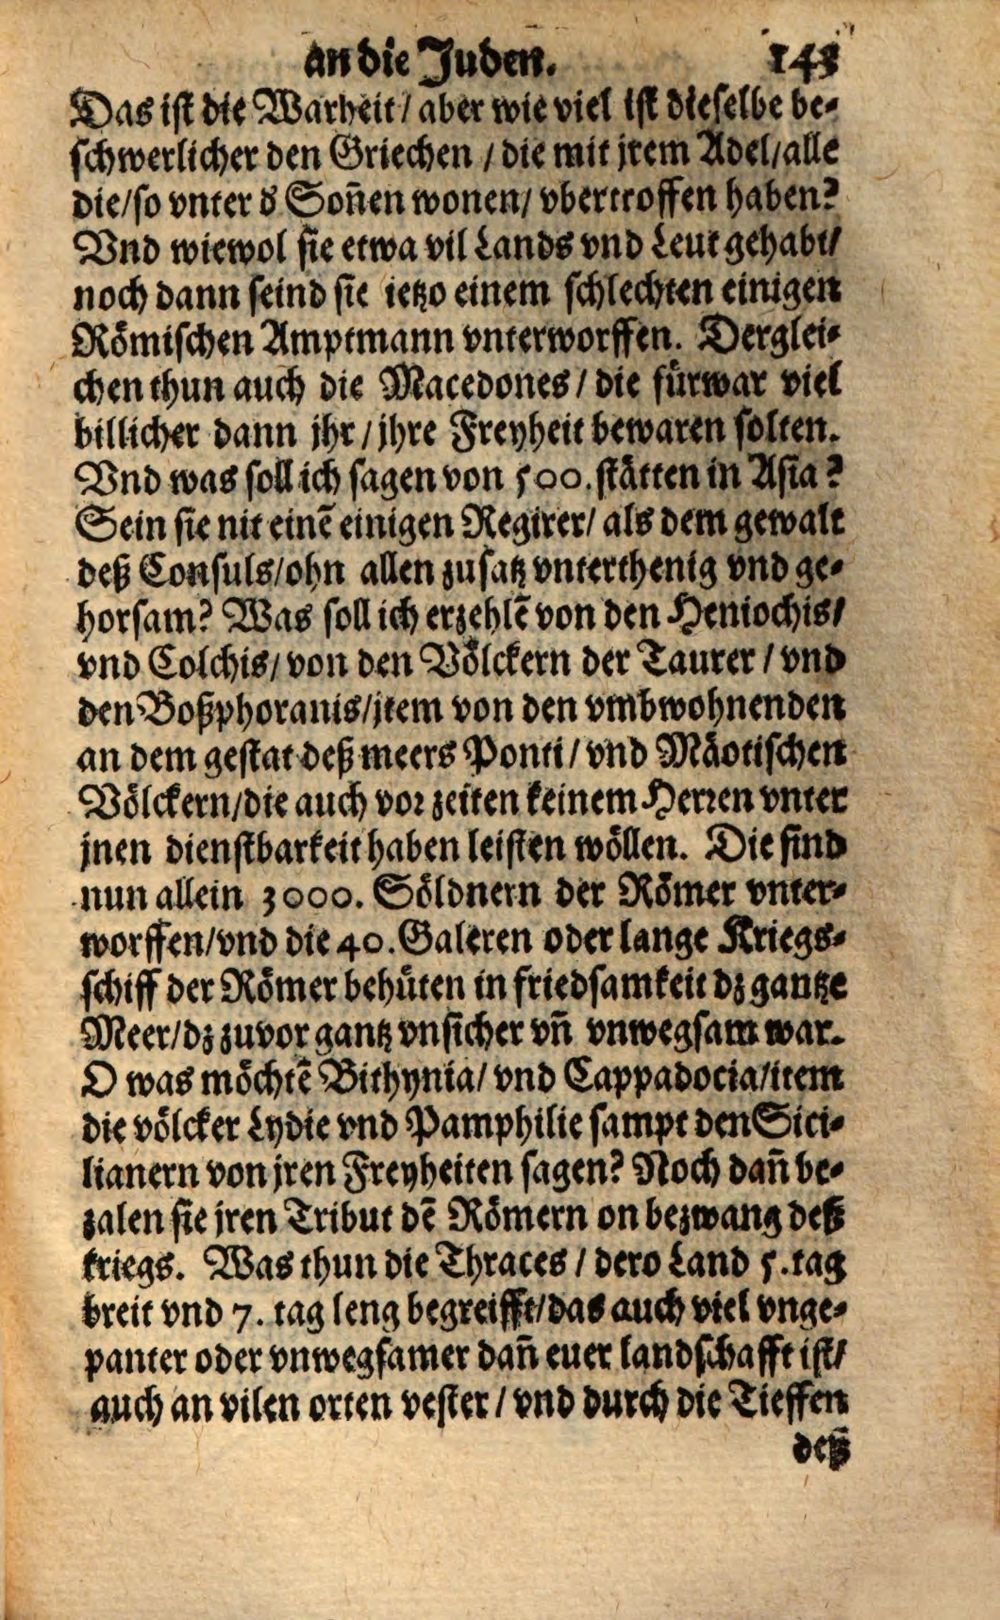 an die Juden. 143
Das ist die Warheit / aber wie viel ist dieselbe be-
schwerlicher den Griechen / die mit jrem Adel / alle
die / so vnter d̕ Soñen wonen / vbertroffen haben?
Vnd wiewol sie etwa vil Lands vnd Leut gehabt /
noch dann seind sie ietzo einem schlechten einigen
Römischen Amptmann vnterworffen. Derglei-
chen thun auch die Macedones / die fürwar viel
billicher dann jhr / jhre Freyheit bewaren solten.
Vnd was soll ich sagen von 500. stätten in Asia?
Sein sie nit einē einigen Regirer / als dem gewalt
deß Consuls / ohn allen zusatz vnterthenig vnd ge-
horsam? Was soll ich erzehlē von den Heniochis /
vnd Colchis / von den Völckern der Taurer / vnd
den Boßphoranis / jtem von den vmbwohnenden
an dem gestat deß meers Ponti / vnd Mäotischen
Völckern / die auch vor zeiten keinem Herren vnter
jnen dienstbarkeit haben leisten wöllen. Die sind
nun allein 3000. Söldnern der Römer vnter-
worffen / vnd die 40. Galeren oder lange Kriegs-
schiff der Römer behüten in friedsamkeit dz gantze
Meer / dz zuvor gantz vnsicher vñ vnwegsam war.
O was möchtē Bithynia / vnd Cappadocia / item
die völcker Lydie vnd Pamphilie sampt den Sici-
lianern von jren Freyheiten sagen? Noch dañ be-
zalen sie jren Tribut dē Römern on bezwang deß
kriegs. Was thun die Thraces / dero Land 5. tag
breit vnd 7. tag leng begreifft / das auch viel vnge-
panter oder vnwegsamer dañ euer landschafft ist /
auch an vilen orten vester / vnd durch die Tieffen
deß